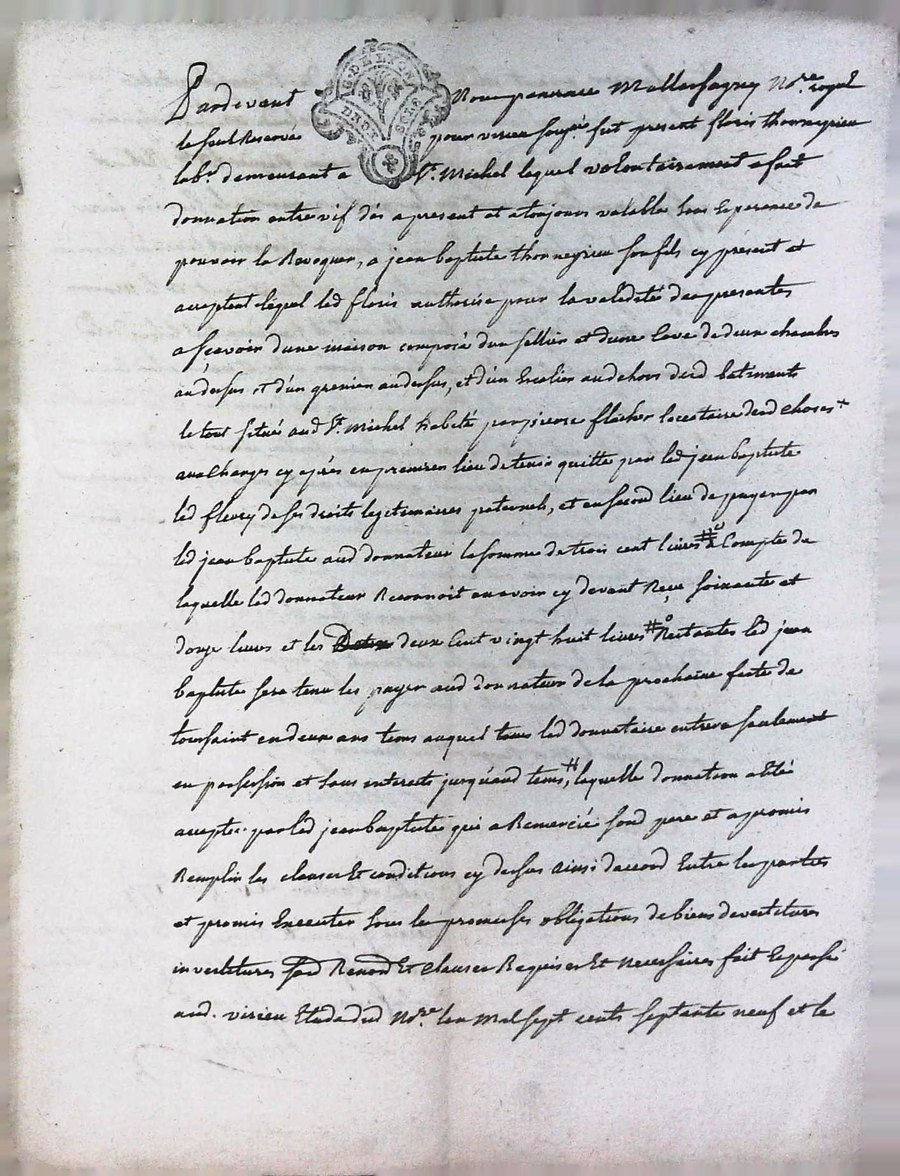 G. DE LYON
DEUX SOLS
Pardevant Nous Mallassagny No.re royal
le seul Reservé pour virieu soussig.é fut present floris thonneyrieu
lab.r demeurant a S.t Michel lequel volontairement a fait
donnation entre vif dès apresent et atoujours valable sans esperance de
pouvoir la Revoquer, a jean baptiste thonneyrieu son fils cy présent et
acceptent léquel led floris authorise pour la validité des presentes
a sçavoir d'une maison composée d'un sellier et d'une cave de deux chambres
au dessus et d'un grenier au dessus, et d'un Escalier au dehors desd batiments
le tout situé aud S.t Michel habité par pierre flacher locataire desd choses +
aux Charges cy après en premier lieu de tenir quitte par led jean baptiste
led fleury de ses droits legitimaires paternels, et en second lieu de payer par
led jean baptiste aud donnateur la somme de trois cent livres # a Compte de
laquelle led donnateur Reconnoit en avoir cy devant Reçu soixante et
douze livres et les deux Cent vingt huit livres # Restantes led jean
baptiste sera tenu les payer aud donnateur de la prochaine feste de
toussaint en deux ans tems auquel tems led donnataire entrera seulement
en possession et sans interests jusqu'aud tems, # laquelle donnation a été
accepte par led jean baptiste qui a Remercié sond pere et a promis
Remplir les clauses Et conditions cy dessus ainsi daccord Entre les parties
et promis Executer sous les promesses obligations de biens devestitures
investitures Renond Et Clauses Requises Et necessaires fait Et passé
aud. virieu Etude dud No.re lan Mil sept cents septante neuf et le